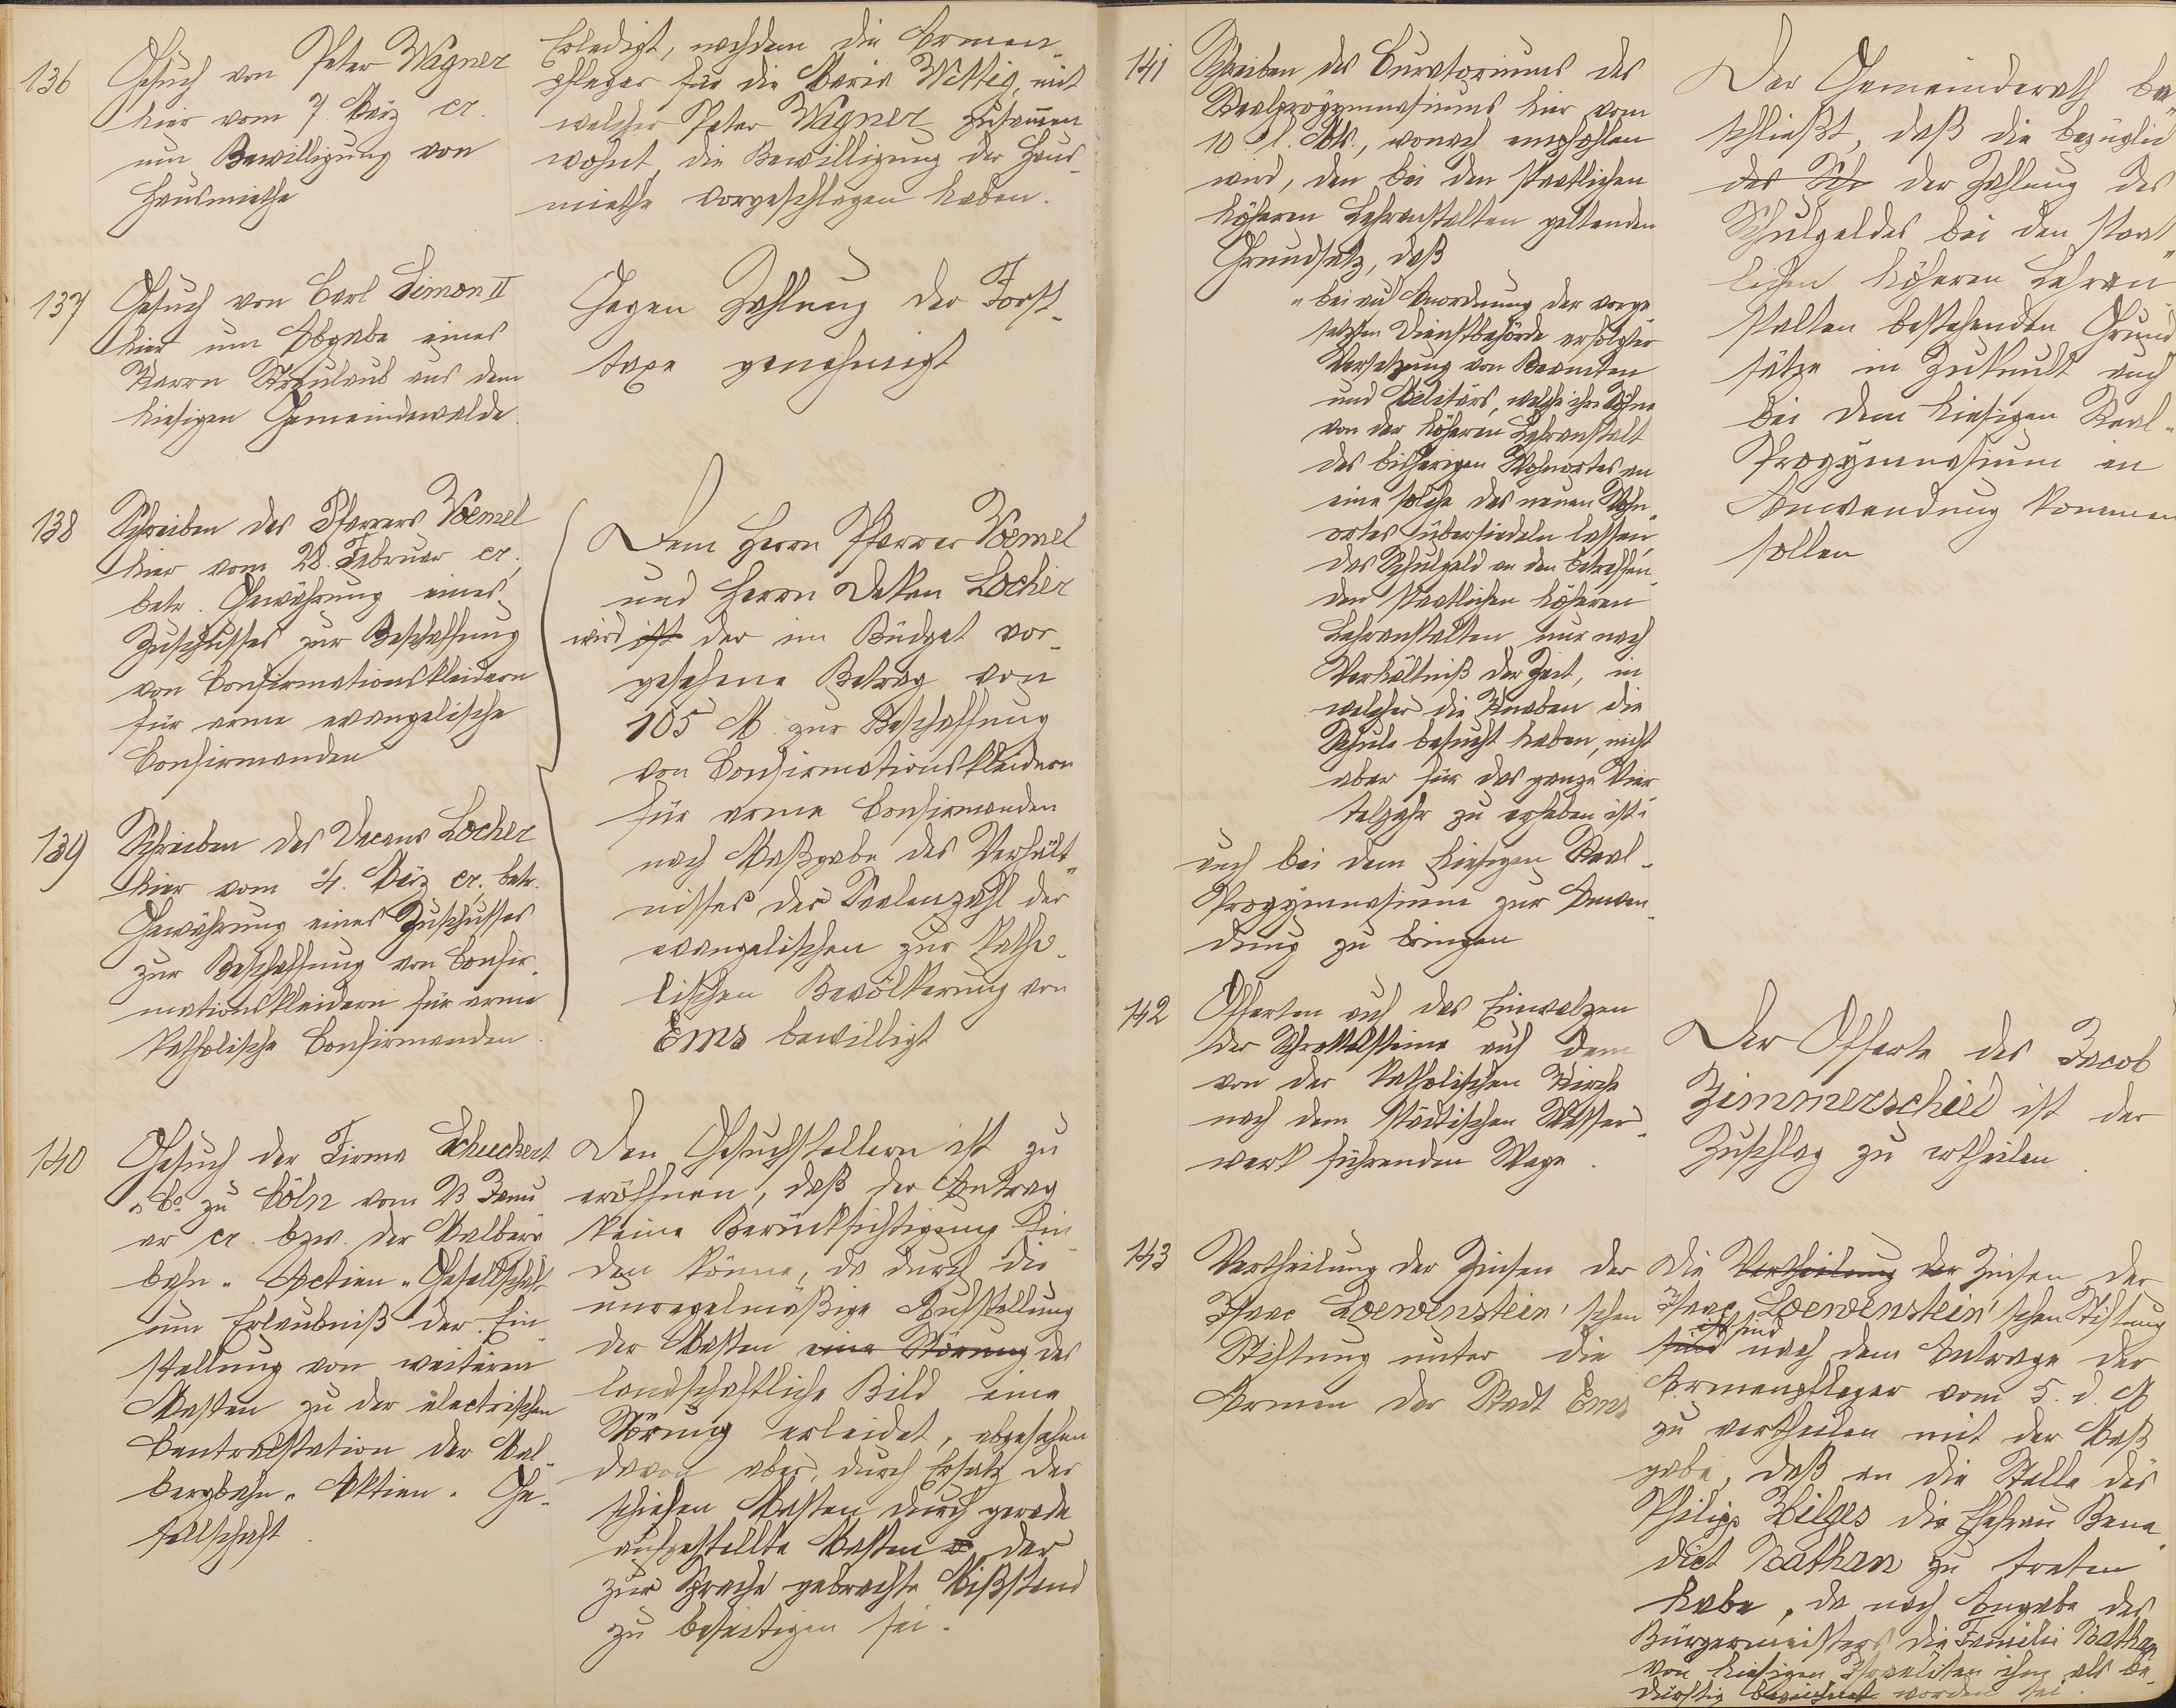 136
Gesuch von Peter Wagner
hier vom 7. März cr.
um Bewilligung von
Hausmiethe
Erledigt, nachdem die Armen-
pfleger für die Maria Wettig, mit
welcher Peter Wagner zusammen
wohnt, die Bewilligung der Haus-
miethe vorgeschlagen haben.
137
Gesuch von Carl Simon II
hier um Abgabe eines
Karrn Streulaub aus dem
hiesigen Gemeindewalde
Gegen Zahlung der Forst-
taxe genehmigt
138
Schreiben des Pfarrers Voemel
hier vom 28. Februar cr.,
betr. Gewährung eines
Zuschusses zur Beschaffung
von Confirmationskleidern
für arme evangelische
Confirmanden
139
Schreiben des Decans Locher
hier vom 4. März cr. betr.
Gewährung eines Zuschusses
zur Beschaffung von Confir-
mationskleidern für arme
katholische Confirmanden
Dem Herrn Pfarrer Voemel
und Herrn Dekan Locher
wird ist der im Büdget vor-
gesehene Betrag von
105 M. zur Beschaffung
von Confirmationskleidern
für arme Confirmanden
nach Maßgabe des Verhält-
nisses der Seelenzahl der
evangelischen zur katho-
lischen Bevölkerung von
Ems bewilligt
140
Gesuch der Firma Schuckert
& Co zu Cöln vom 23 Janu
ar cr. bzw. der Malberg
bahn-Actien-Gesellschaft
um Erlaubniß der Ein-
stellung von weiteren
Masten zu der electrischen
Centralstation der Mal-
bergbahn-Aktien-Ge-
sellschaft.
Den Gesuchstellern ist zu
eröffnen, daß der Antrag
keine Berücksichtigung fin-
den könne, da durch die
unregelmäßige Aufstellung
der Masten eine Störung das
landschaftliche Bild eine
Störung erleidet, abgesehen
davon aber, durch Ersatz der
schiefen Masten durch gerade
aufgestellte Masten der
zur Sprache gebrachte Mißstand
zu beseitigen sei.
141
Schreiben des Curatoriums des
Realprogymnasiums hier vom
10 l. Mts., wonach empfohlen
wird, den bei den staatlichen
höheren Lehranstalten geltenden
Grundsatz, daß
"bei auf Anordnung der vorge-
setzten Dienstbehörde erfolgter
Versetzung von Beamten
und Militärs, welche ihre Söhne
von der höheren Lehranstalt
des bisherigen Wohnortes an
eine solche des neuen Wohn-
ortes übersiedeln lassen,
das Schulgeld an den betreffen-
den staatlichen höheren
Lehranstalten nur nach
Verhältniß der Zeit, in
welcher die Knaben die
Schule besucht haben, nicht
aber für das ganze Vier-
teljahr zu erheben ist"
auch bei dem hiesigen Real-
Progymnasium zur Anwen-
dung zu bringen
Der Gemeinderath be-
schließt, daß die bezüglich
des Sch der Zahlung des
Schulgeldes bei den staat-
lichen höheren Lehran-
stalten bestehenden Grund
sätze in Zukunft auch
bei dem hiesigen Real-
Progymnasium in
Anwendung kommen
sollen
142
Offerten auf das Einwalzen
der Schrottelsteine auf dem
von der katholischen Kirche
nach dem städtischen Wasser-
werk führenden Wege.
Der Offerte des Jacob
Zimmerschied ist der
Zuschlag zu ertheilen.
143
Vertheilung der Zinsen der
Isaac Loewenstein'schen
Stiftung unter die
Armen der Stadt Ems
Die Vertheilung der Zinsen der
Isaac Loewenstein'schen Stiftung
ist sind
sind nach dem Antrage der
Armenpfleger vom 5. d. M
zu vertheilen mit der Maß
gabe, daß an die Stelle des
Philipp Hilges die Ehefrau Bene-
dict Nathan zu treten
habe, da nach Angabe des
Bürgermeisters die Familie Nathan
von hiesigen Israeliten ihm als be-
dürftig bezeichnet worden sei.